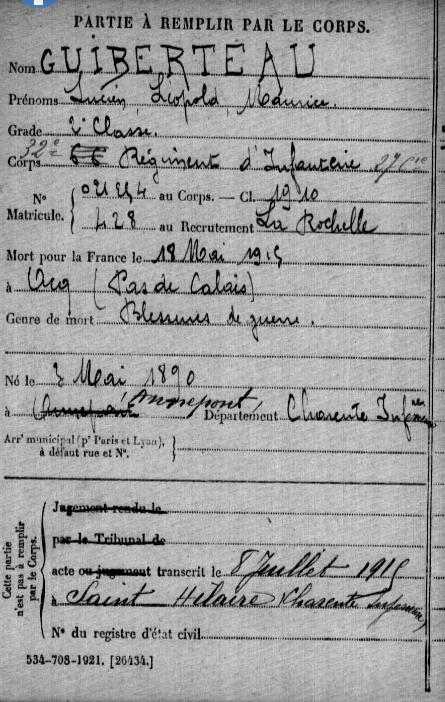 PARTIE À REMPLIR PAR LE CORPS.
Nom GUIBERTEAU
Prénoms Lucien, Léopold, Maurice.
Grade 2e Classe.
Corps 32e Régiment d'Infanterie 27 Cie
N° au Corps. — Cl. 1910
Matricule. 428 au Recrutement La Rochelle
Mort pour la France le 18 Mai 1915
à Acq (Pas de Calais)
Genre de mort Blessures de guerre.
Né le 3 Mai 1890
à Annepont Département Charente Infre
Arrt municipal (pr Paris et Lyon), à défaut rue et N°.
Cette partie n'est pas à remplir par le Corps.
Jugement rendu le
par le Tribunal de
acte ou jugement transcrit le 8 Juillet 1915
à Saint Hilaire (Charente Inférieure)
N° du registre d'état civil
534-708-1921. [26434.]